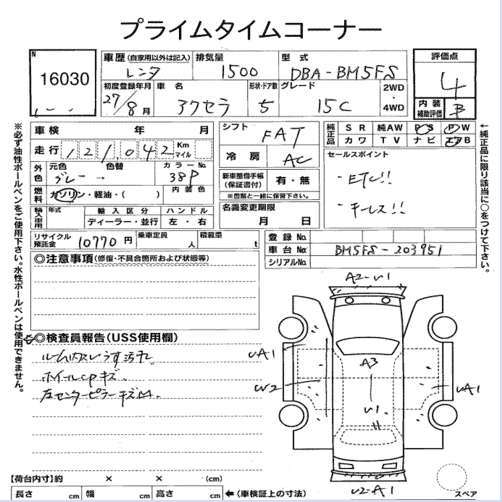 プライムタイムコーナー
No.
16030
車歴 (自家用以外は記入)
レンタ
排気量
1500
型式
DBA-BM5FS
評価点
4
初度登録年月
27年
8月
車名
アクセラ
形状・ドア数
5
グレード
15C
2WD
・
4WD
内装
補助評価
B
※必ず油性ボールペンをご使用下さい。水性ボールペンは使用できません。
車検 年 月
走行 121,042 Km
マイル
外色
元色
グレー
→
色替
カラーNo.
38P
燃料
ガソリン・軽油・( )
内装色
輸入車用
年式
輸入区分
ディーラー・並行
ハンドル
左・右
リサイクル
預託金
10770円
乗車定員
人
積載量
t
シフト
FAT
冷房
AC
新車整備手帳
(保証書付)
有・無
※書類と一緒に保管して下さい。
名義変更期限
月 日
純正品
SR 純AW PS PW
カワ TV ナビ エアB
セールスポイント
・ETC!!
・キーレス!!
←純正品に限り該当に○をつけて下さい。
登録No.
車台No.
BM5FS-203951
シリアルNo.
◎注意事項(修復・不具合箇所および状態等)
◎検査員報告(USS使用欄)
ルーム内スレうす汚れ
ホイールcpキズ
左センターピラーキズM.
A2-U1
UA1
A3
U2
U1
UA1
U2-A1
【荷台内寸】約 × × (cm)
長さ cm 幅 cm 高さ cm
←(車検証上の寸法)
スペア